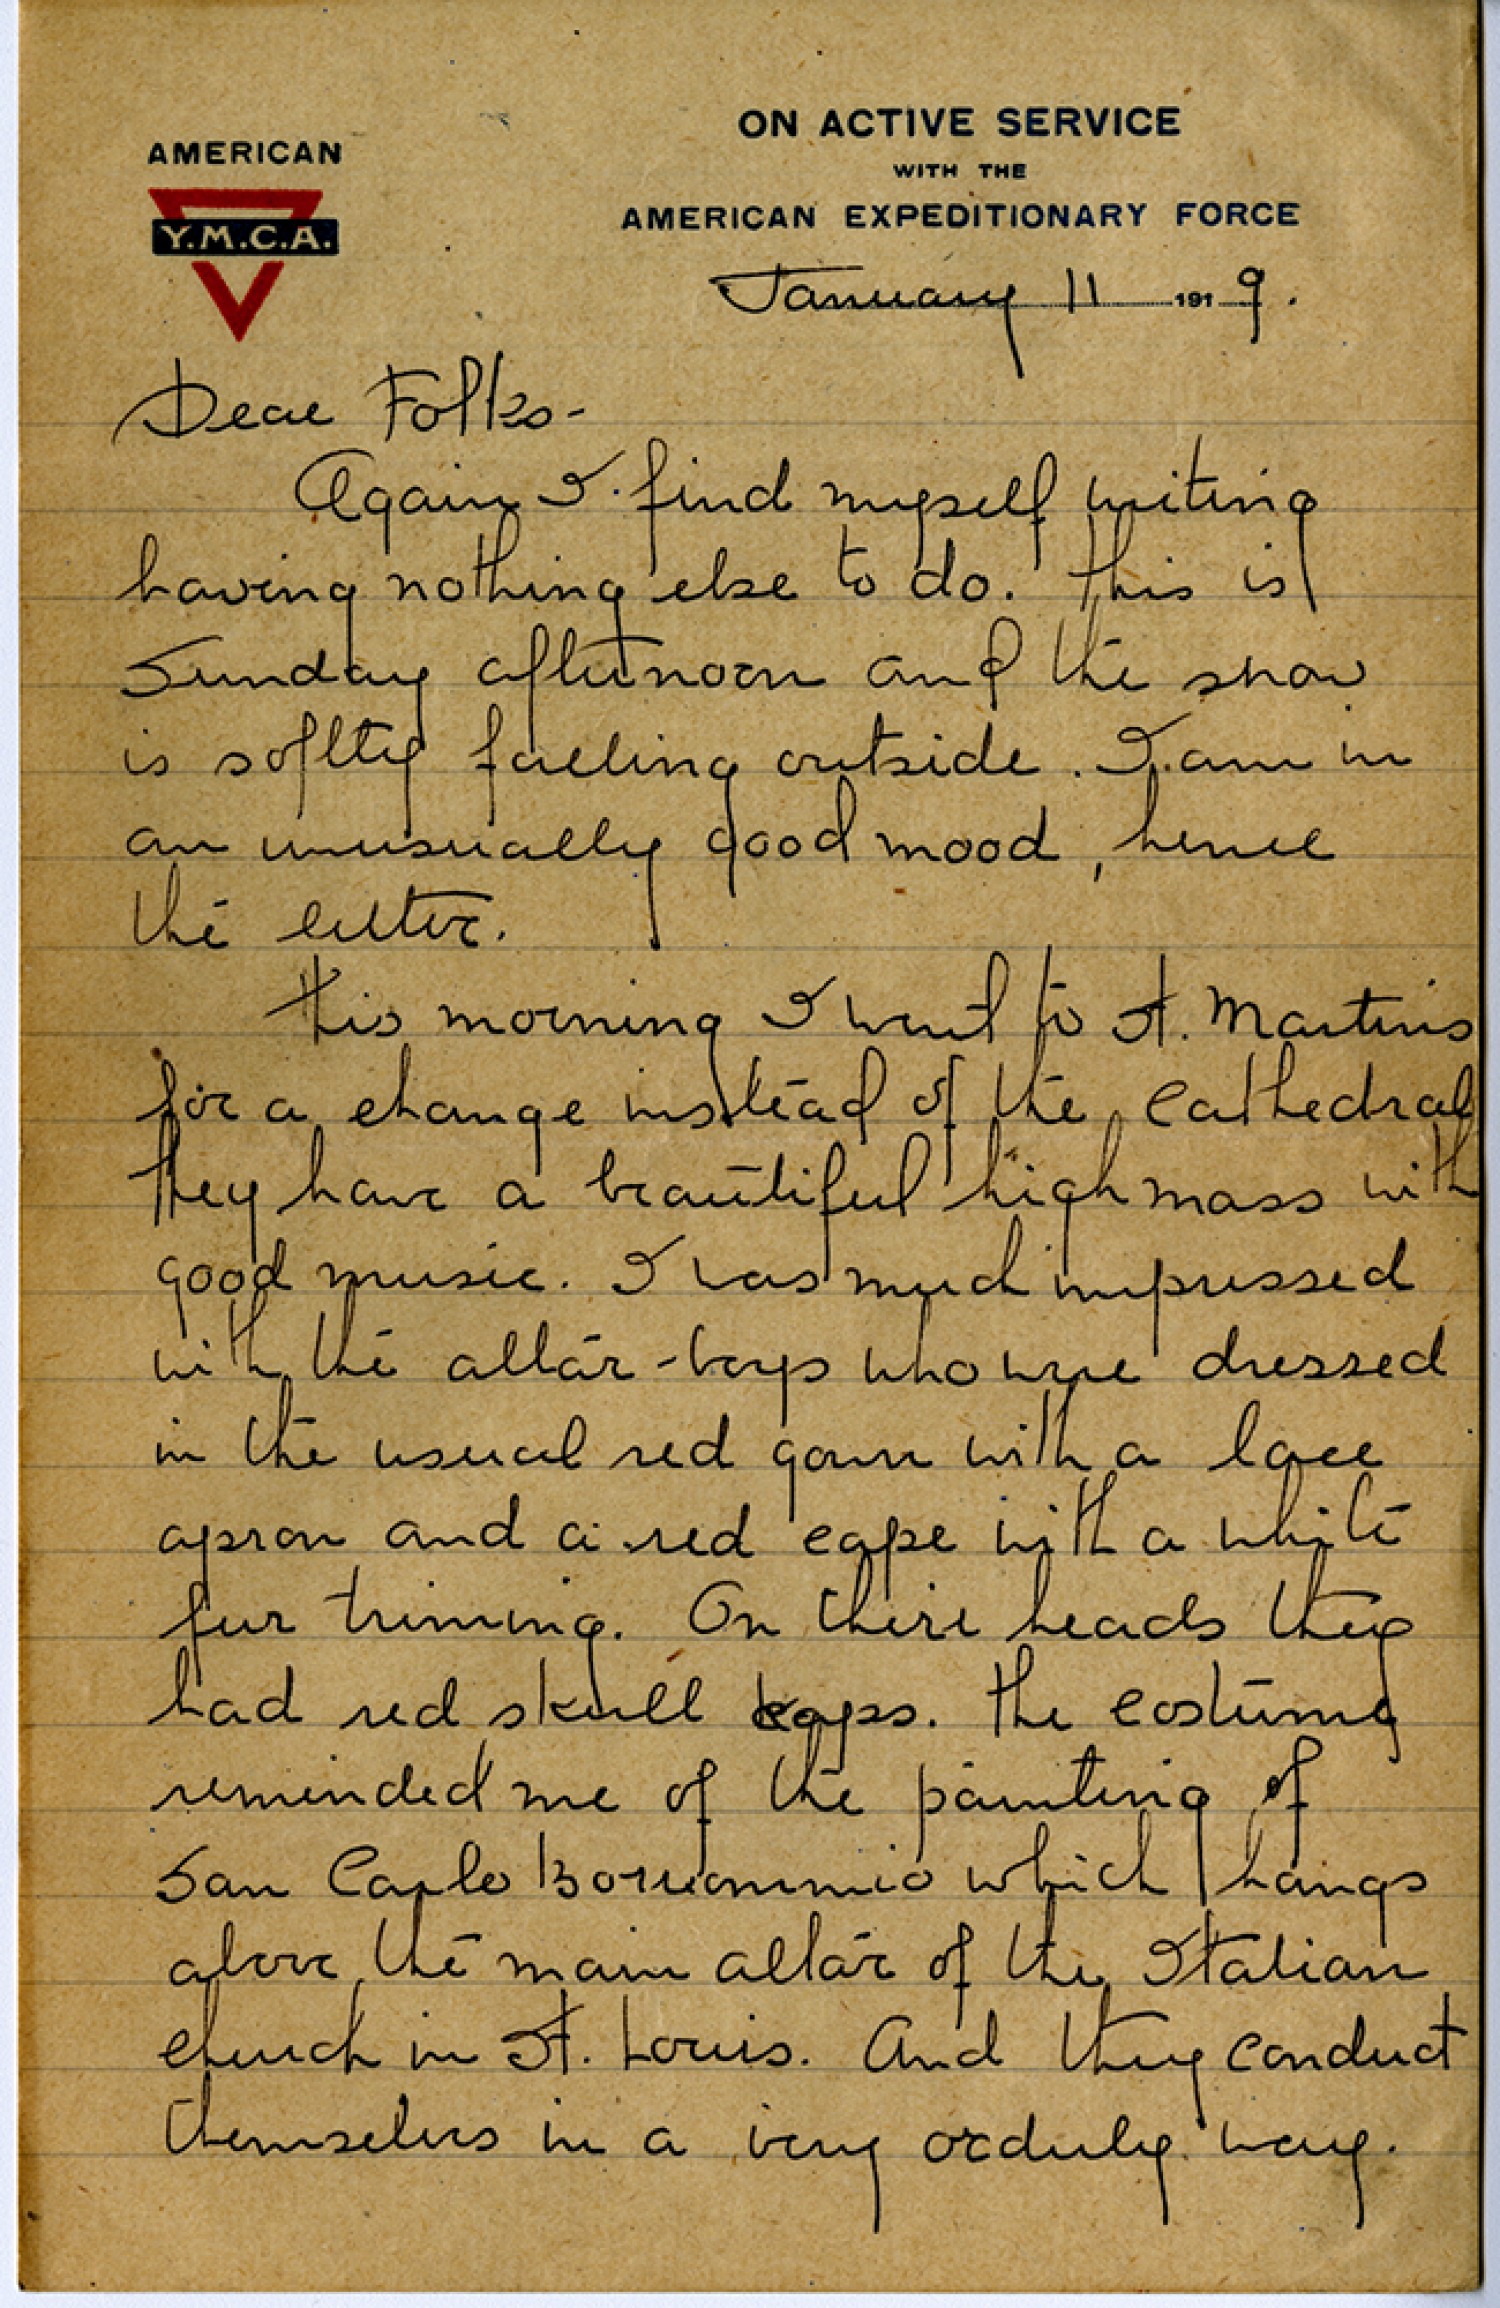 AMERICAN
Y.M.C.A.
ON ACTIVE SERVICE
WITH THE
AMERICAN EXPEDITIONARY FORCE
January 11 1919.
Dear Folks-
Again I find myself writing
having nothing else to do. This is
Sunday afternoon and the snow
is softly falling outside. I am in
an unusually good mood, hence
the letter.
This morning I went to St. Martins
for a change instead of the Cathedral
They have a beautiful high mass with
good music. I was much impressed
with the altar-boys who were dressed
in the usual red gown with a lace
apron and a red cape with a white
fur triming. On their heads they
had red skull caps. The costume
reminded me of the painting of
San Carlo Borrommio which hangs
above the main altar of the Italian
church in St. Louis. And they conduct
themselves in a very orderly way.